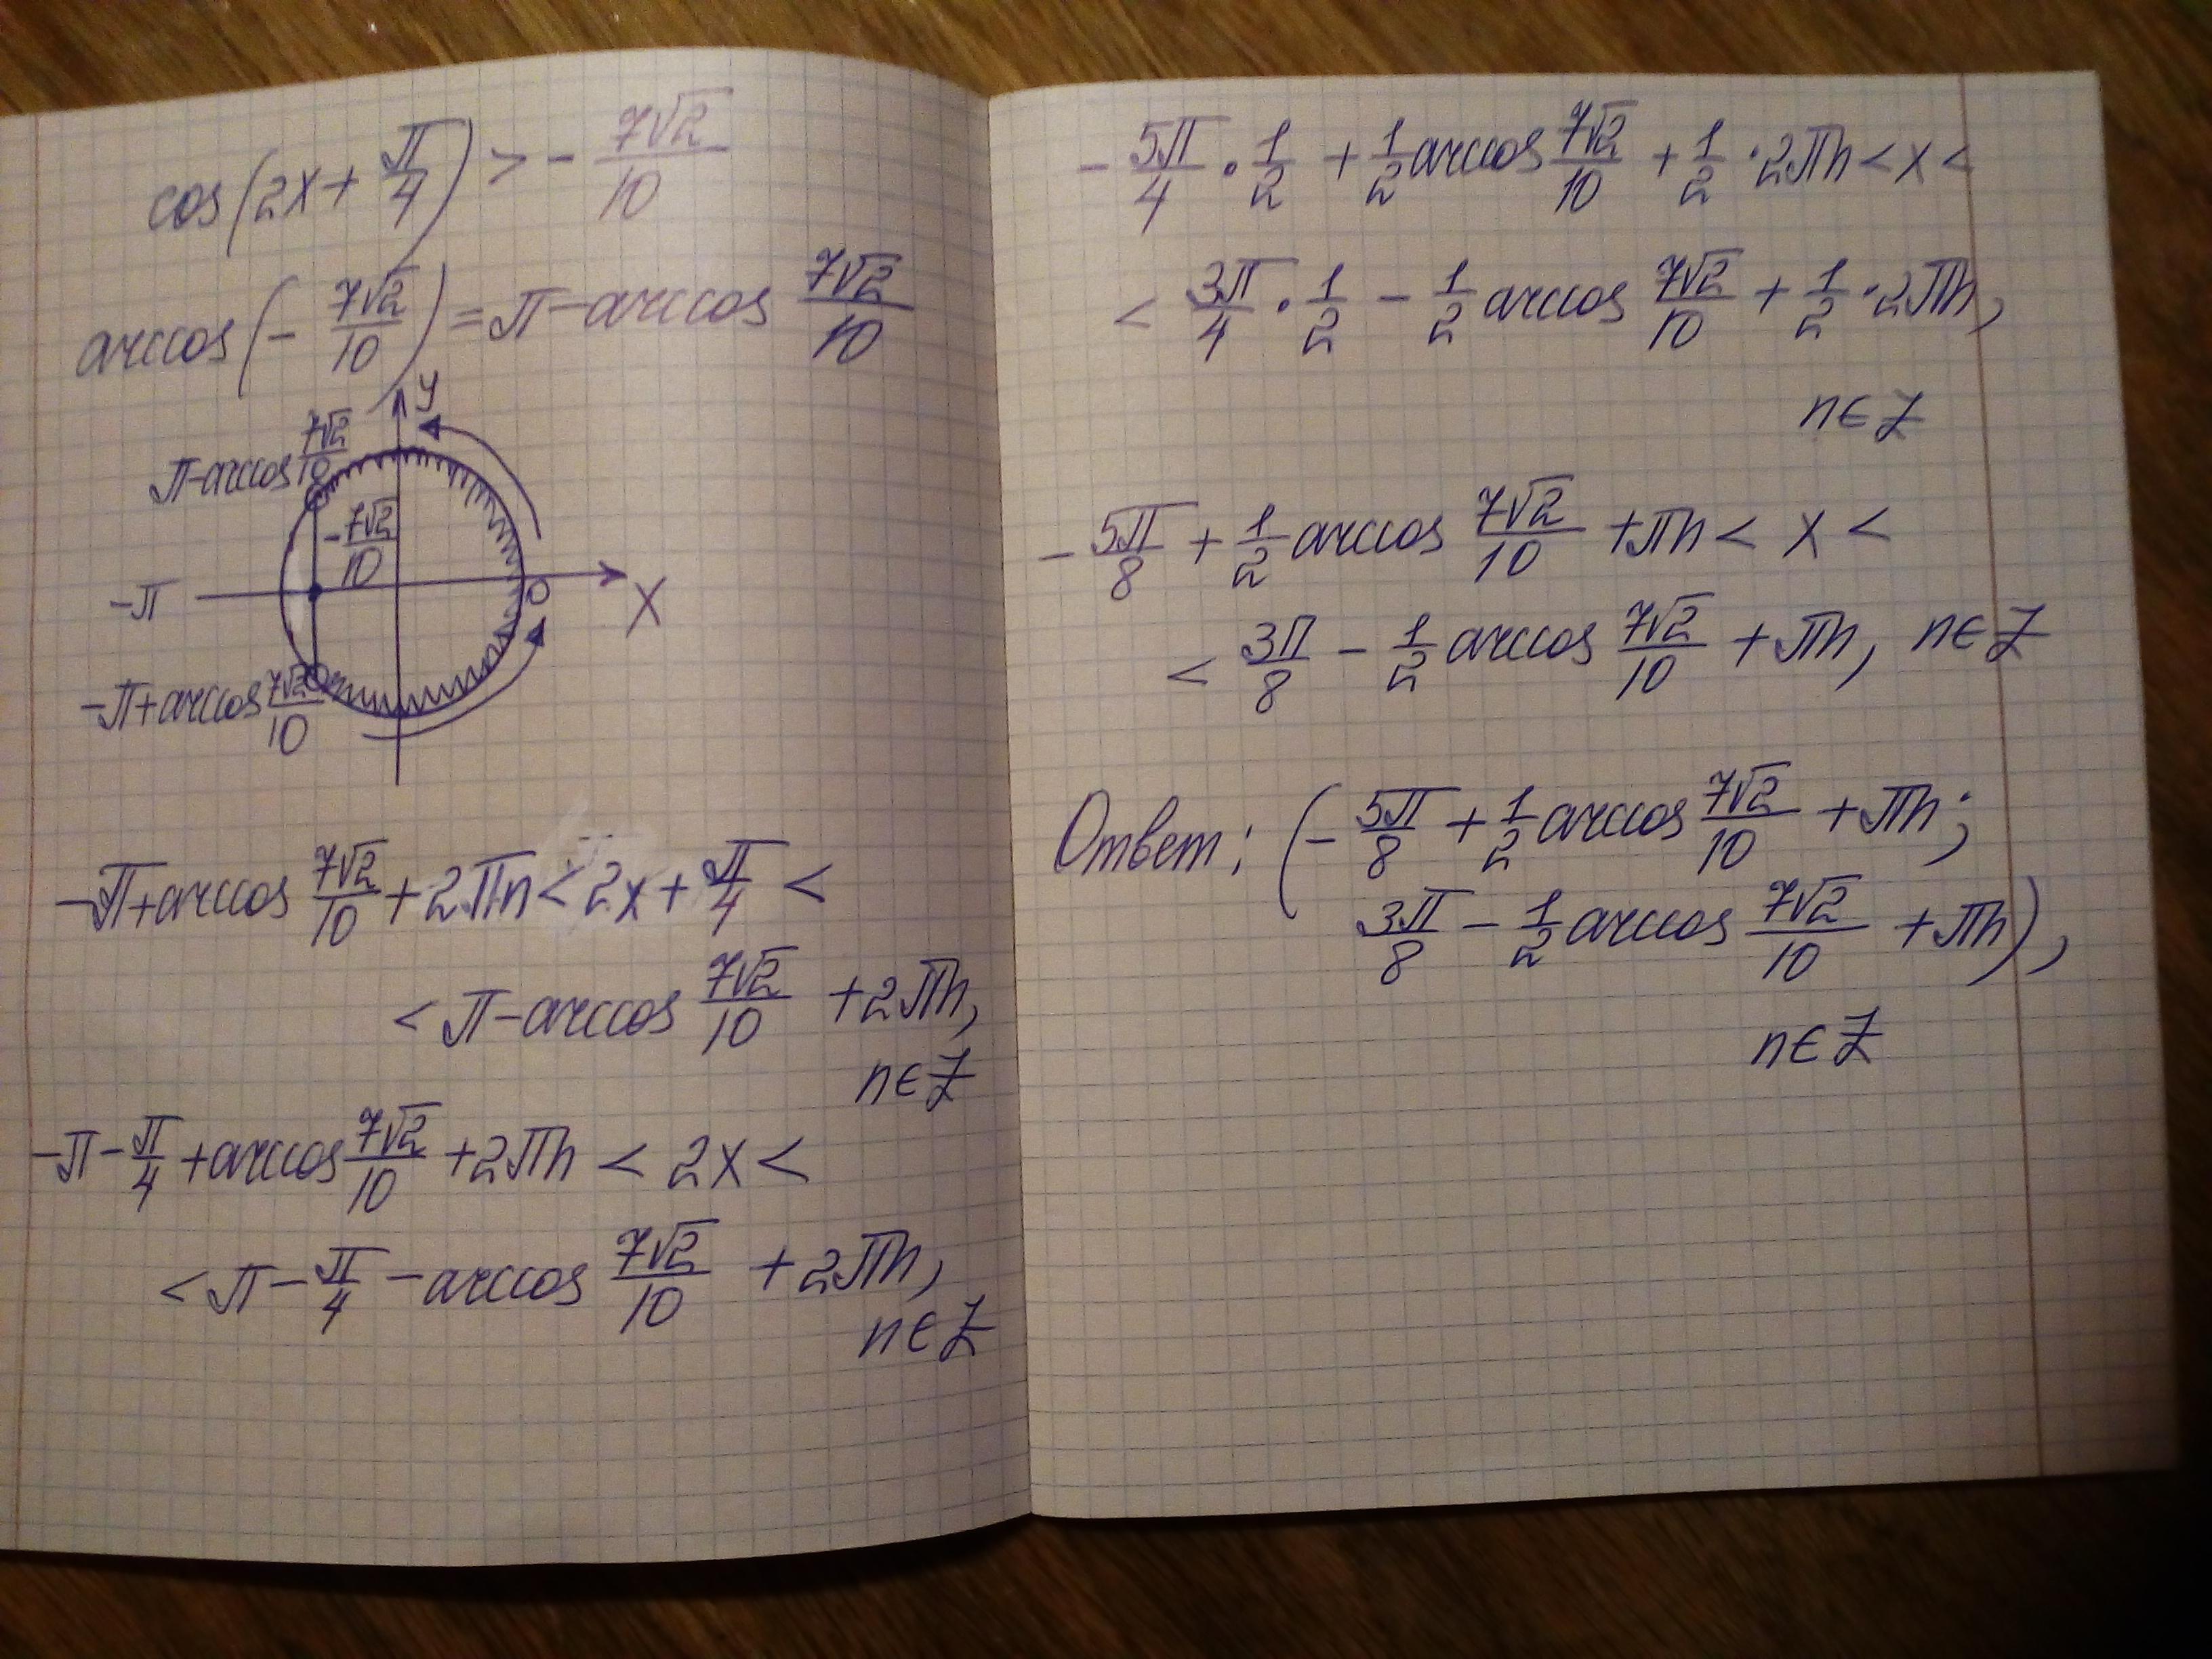 cos(2x + π/4) > - 7√2/10
arccos(- 7√2/10) = π - arccos 7√2/10
y
π-arccos 7√2/10
- 7√2/10
-π
0
X
-π+arccos 7√2/10
-π+arccos 7√2/10 + 2πn < 2x + π/4 <
< π - arccos 7√2/10 + 2πn,
n∈Z
-π - π/4 + arccos 7√2/10 + 2πn < 2x <
< π - π/4 - arccos 7√2/10 + 2πn,
n∈Z
- 5π/4 · 1/2 + 1/2 arccos 7√2/10 + 1/2 · 2πn < x <
< 3π/4 · 1/2 - 1/2 arccos 7√2/10 + 1/2 · 2πn,
n∈Z
- 5π/8 + 1/2 arccos 7√2/10 + πn < x <
< 3π/8 - 1/2 arccos 7√2/10 + πn, n∈Z
Ответ: (- 5π/8 + 1/2 arccos 7√2/10 + πn;
3π/8 - 1/2 arccos 7√2/10 + πn),
n∈Z